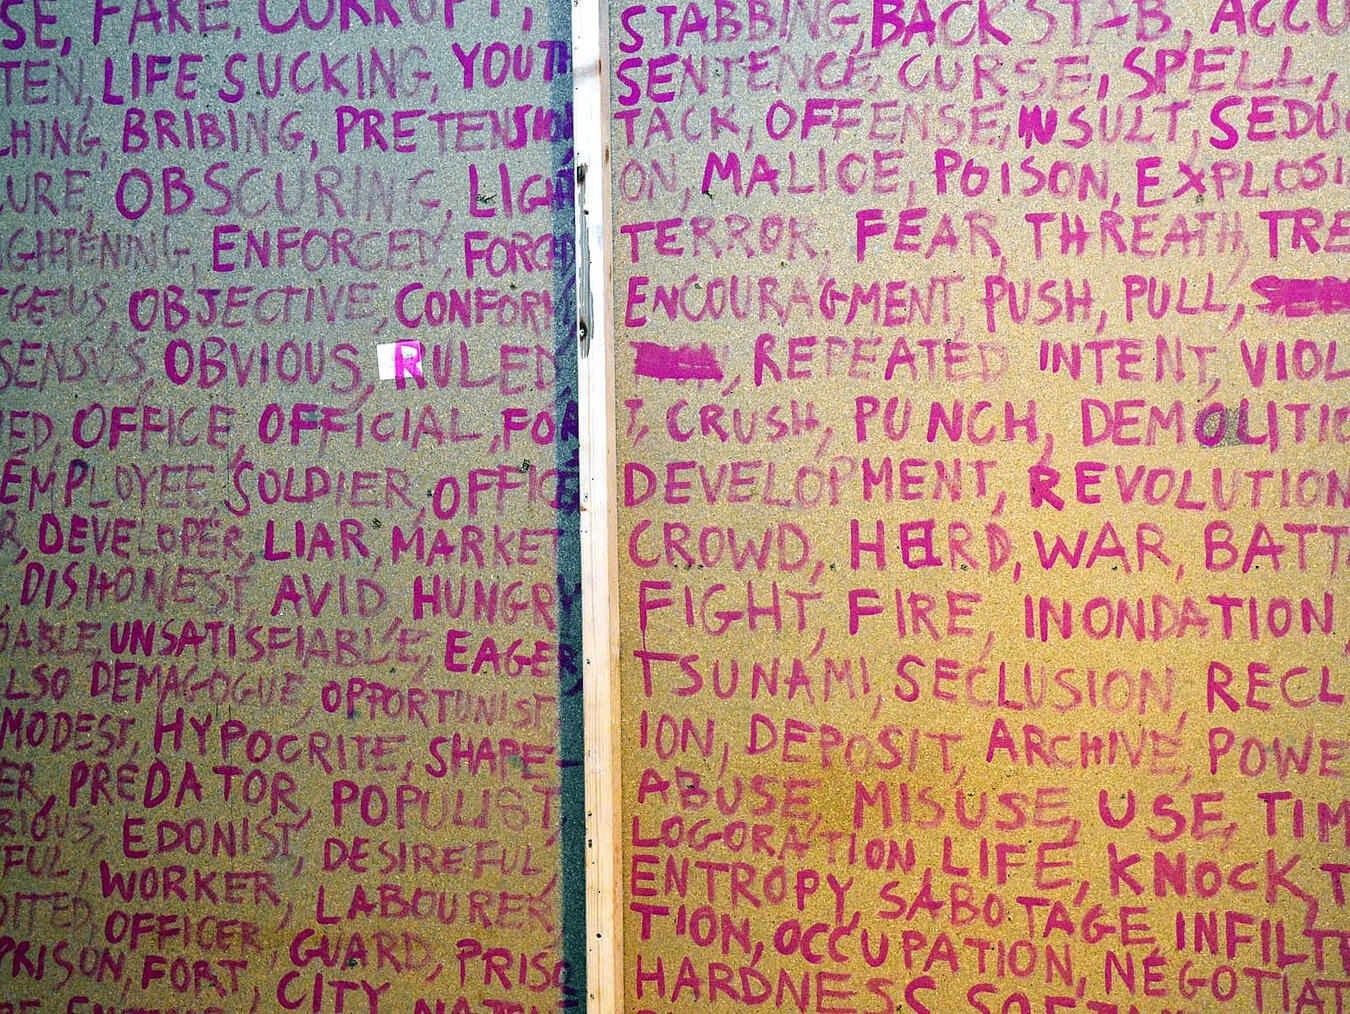 SE, FAKE, CORRUPT,
TEN, LIFE SUCKING, YOUTH
LHING, BRIBING, PRETENSIO
URE, OBSCURING, LIGH
IGHTENING, ENFORCED, FORGED
TGEOUS, OBJECTIVE, CONFORM
SENSUS, OBVIOUS, RULED
ED, OFFICE, OFFICIAL, FOR
EMPLOYEE, SOLDIER, OFFICE
R, DEVELOPER, LIAR, MARKET
, DISHONEST, AVID, HUNGRY
DABLE, UNSATISFIABLE, EAGER
LSO DEMAGOGUE, OPPORTUNIST
MODEST, HYPOCRITE, SHAPE
ER, PREDATOR, POPULIST
RIOUS, EDONIST, DESIREFUL,
FUL, WORKER, LABOURER,
DITED, OFFICER, GUARD, PRISO
PRISON, FORT, CITY, NATION
STABBING, BACKSTAB, ACCU
SENTENCE, CURSE, SPELL,
TACK, OFFENSE, INSULT, SEDUC
ON, MALICE, POISON, EXPLOSI
TERROR, FEAR, THREATH, TRE
ENCOURAGMENT, PUSH, PULL,
, REPEATED INTENT, VIOL
T, CRUSH, PUNCH, DEMOLITIO
DEVELOPMENT, REVOLUTION
CROWD, HERD, WAR, BATT
FIGHT, FIRE, INONDATION,
TSUNAMI, SECLUSION, RECL
ION, DEPOSIT, ARCHIVE, POWE
ABUSE, MISUSE, USE, TIM
LOGORATION, LIFE, KNOCK, T
ENTROPY, SABOTAGE, INFILT
TION, OCCUPATION, NEGOTIAT
HARDNESS, SOFTN